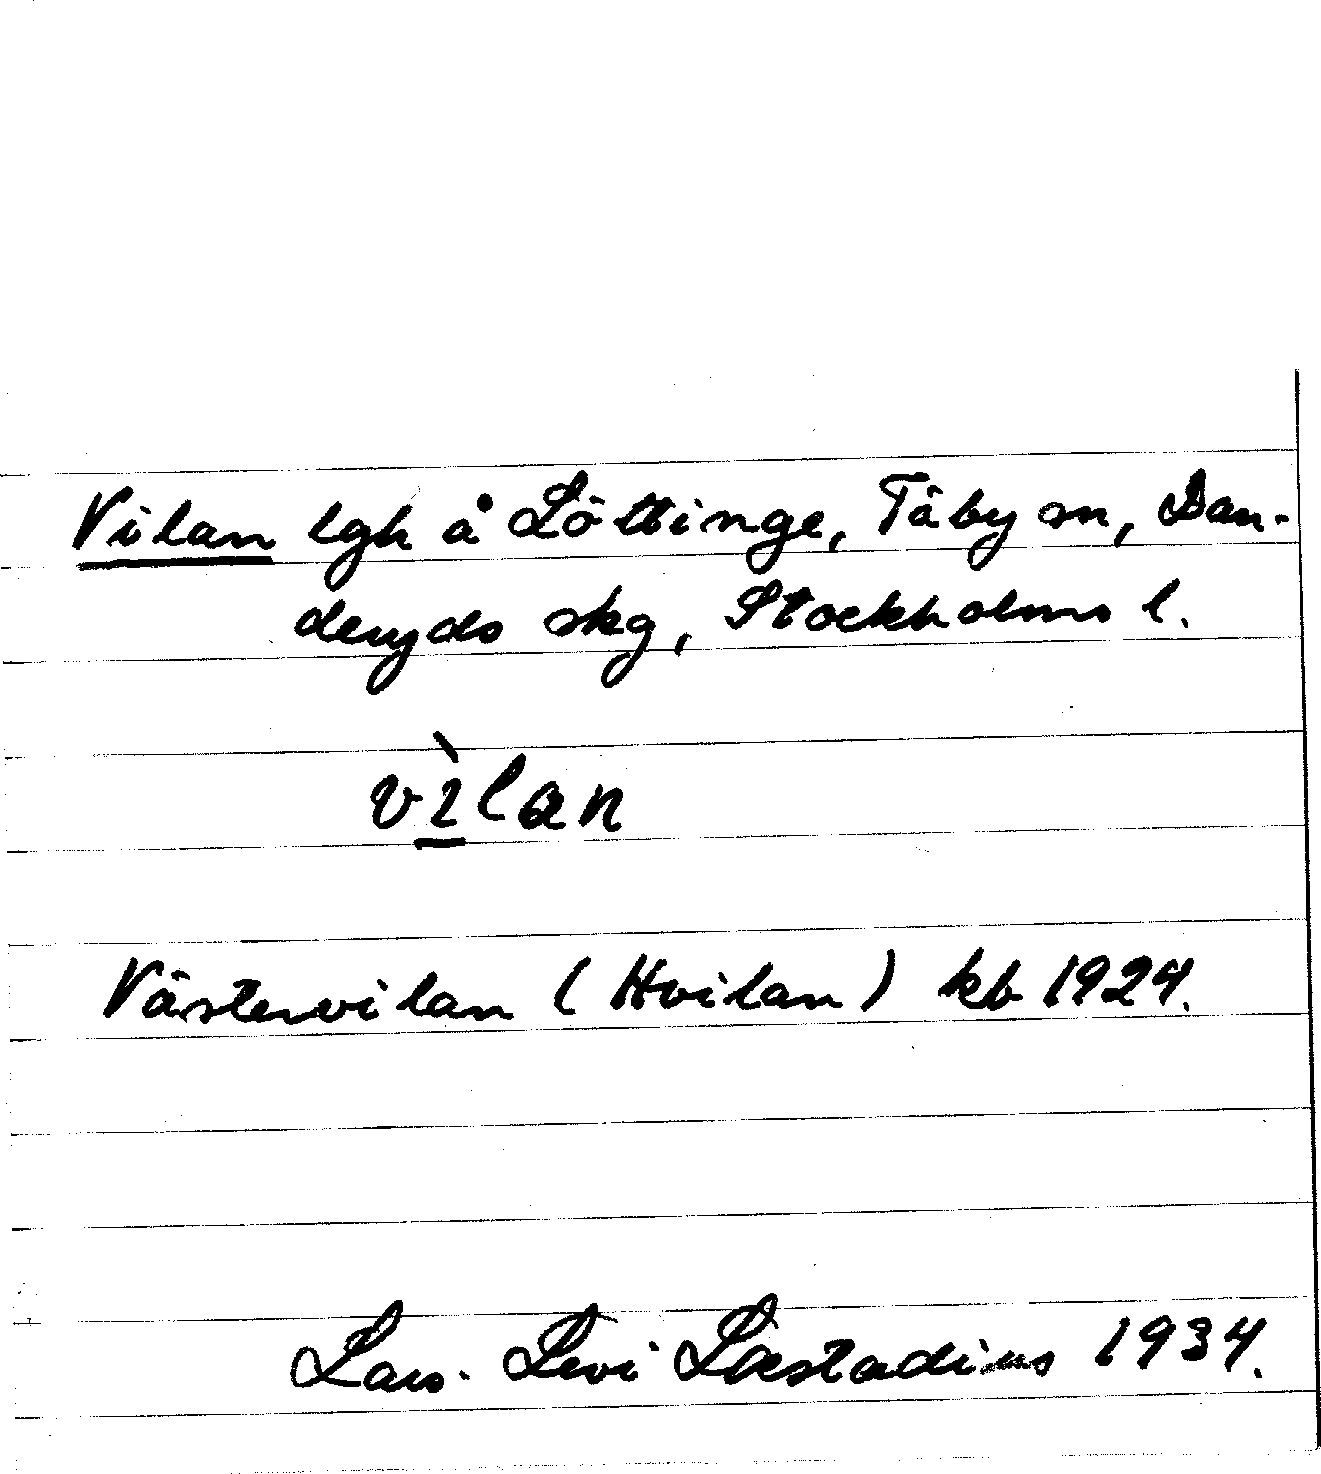 Vilan lgh å Löttinge, Täby sn, Dan-
deryds skg, Stockholms l.
vìlan
Västervilan (Hvilan) kb 1924.
Lars. Levi Læstadius 1934.